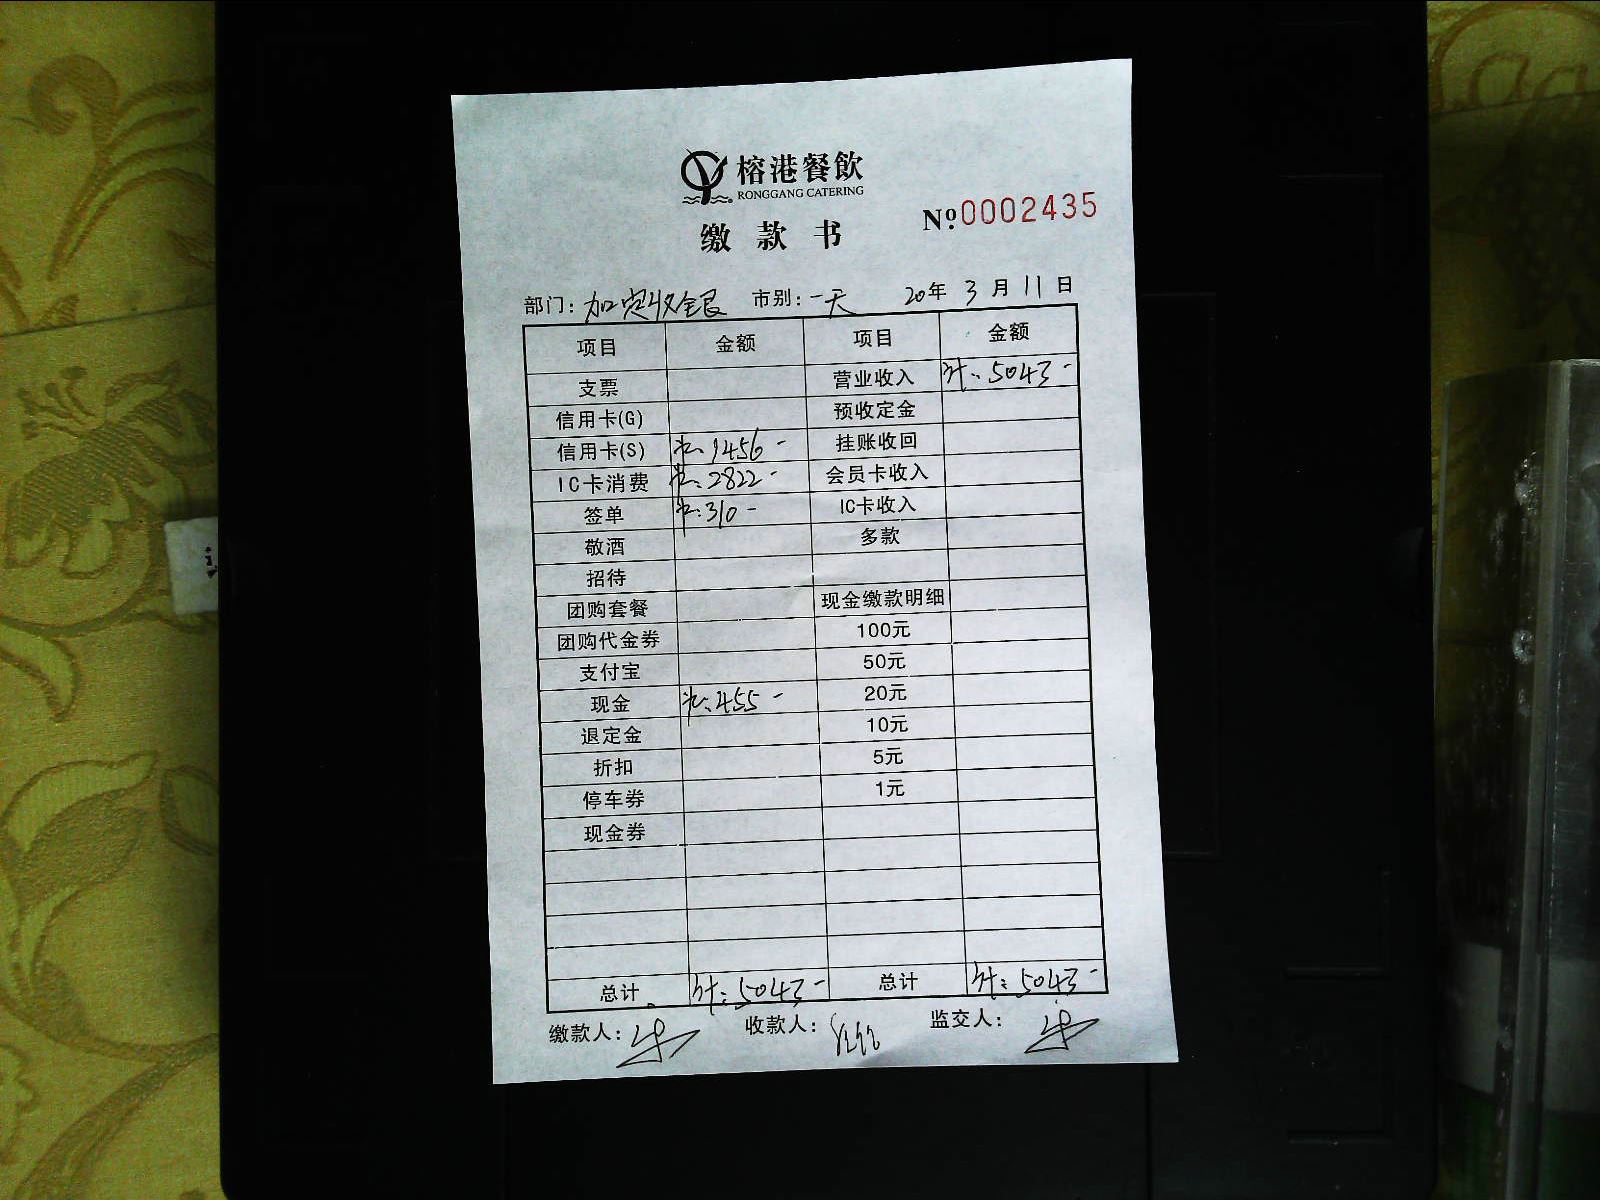 榕港餐飲
RONGGANG CATERING
缴款书 Nº.0002435
部门: 加定收银 市别: 一天 20年 3月 11日
项目 金额 项目 金额
支票 营业收入 计: 5043-
信用卡(G) 预收定金
信用卡(S) 1456- 挂账收回
IC卡消费 2822- 会员卡收入
签单 310- IC卡收入
敬酒 多款
招待
团购套餐 现金缴款明细
团购代金券 100元
支付宝 50元
现金 455- 20元
退定金 10元
折扣 5元
停车券 1元
现金券
总计 计: 5043- 总计 计: 5043-
缴款人: 收款人: 监交人: